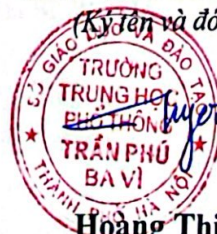 (Ký tên và đó
SỞ GIÁO DỤC VÀ ĐÀO TẠO
TRƯỜNG
TRUNG HỌC
PHỔ THÔNG
TRẦN PHÚ
BA VÌ
THÀNH PHỐ HÀ NỘI
Hoàng Thị